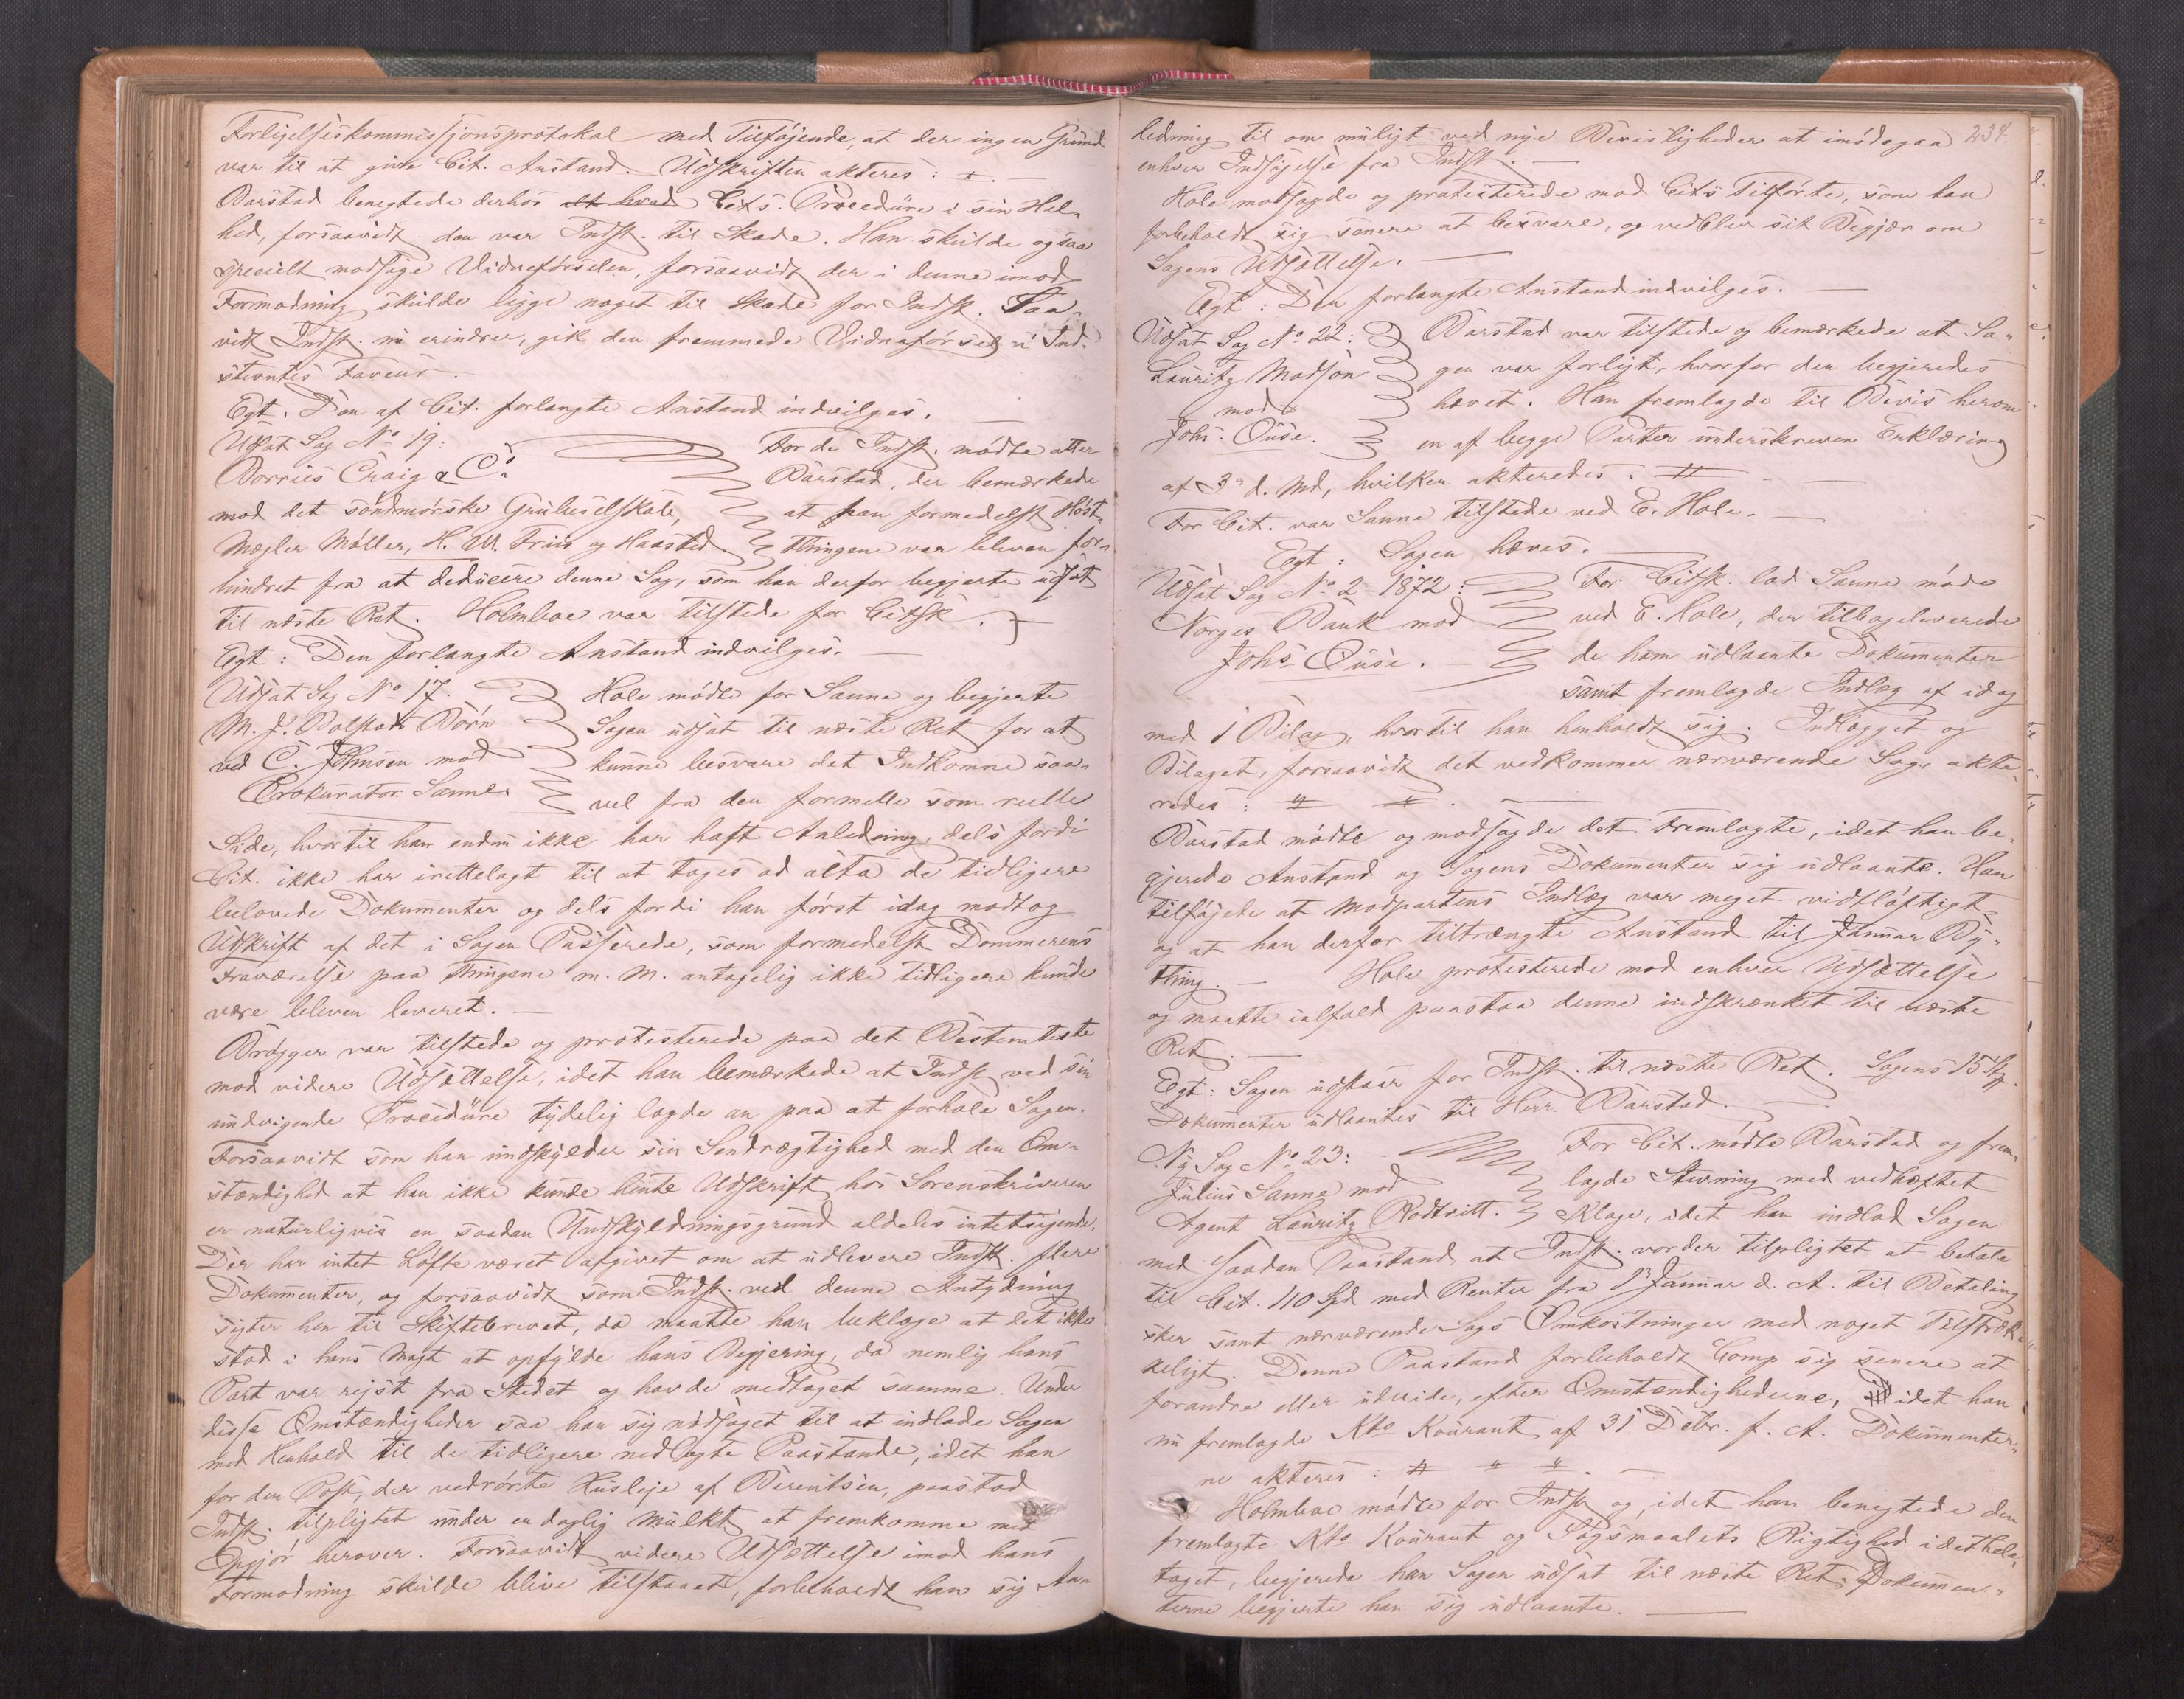 Forligelseskommissjonsprotokol med Tilføjende, at der ingen Grund
var til at give Cit. Anstand. Udskriften akteres: +. —
Barstad benegtede derhos alt hvad Cits. Procedüre i sin Hel-
hed, forsaavidt den var Indst. til Skade. Han skulde ogsaa
specielt modsige Vidneførselen, forsaavidt der i denne imod
Formodning skulde ligge noget til Skade for Indst. Saa-
vidt Indst. nu erindrer, gik den fremmede Vidneførsel i Ind-
stevntes Faveur.
Egt: Den af Cit. forlangte Anstand indvilges. —
Udsat Sag No 19:
Borries Craig & Co
mod det söndmørske Grubeselskab,
Mægler Møller, H. M. Friis og Haasted.
For de Indst. mødte atter
Barstad, der bemærkede
at han formedelst Høst-
thingene var bleven for-
hindret fra at deducere denne Sag, som han derfor begjerte udsat
til næste Ret. Holmboe var tilstede for Citsk.
Egt: Den forlangte Anstand indvilges. —
Udsat Sag No 17.
M. J. Dolpats Børn
ved C. Johnsen mod
Prokurator Sanne.
Hole mødte for Sanne og begjerte
Sagen udsat til næste Ret for at
kunne besvare det Indkomne saa-
vel fra den formelle som reelle
Side, hvortil han endnu ikke har haft Anledning, dels fordi
Cit. ikke har irettelagt til at tages ad akta de tidligere
belovede Dokumenter og dels fordi han först idag modtog
Udskrift af det i Sagen Passerede, som formedelst Dommerens
Fraværelse paa Thingene m. M. antagelig ikke tidligere kunde
være bleven leveret. —
Brøgger var tilstede og protesterede paa det Bestemteste
mod videre Udsættelse, idet han bemærkede at Indst ved sin
undvigende Procedüre tydelig lagde an paa at forhale Sagen.
Forsaavidt som han undskylder sin Sendrægtighed med den Om-
stændighed at han ikke kunde hente Udskrift hos Sorenskriveren
er naturligvis en saadan Undskyldningsgrund aldeles intetsigende.
Der har intet Løfte været afgivet om at udlevere Indst. flere
Dokumenter, og forsaavidt som Indst. ved denne Antydning
sigter hen til Skiftebrevet, da maatte han beklage at det ikke
stod i hans Magt at opfylde hans Begjering, da nemlig hans
Part var rejst fra Stedet og havde medtaget samme. Under
disse Omstændigheder saa han sig nødsaget til at indlade Sagen
med Henhold til de tidligere nedlagte Paastande, idet han
for den Post, der vedrørte Husleje af Berentsen, paastod
Indst. tilpligtet under en daglig Mulkt at fremkomme med
Opgjör herover. Forsaavidt videre Udsættelse imod hans
Formodning skulde blive tilstaaet, forbeholdt han sig An-
234.
ledning til om muligt ved nye Bevisligheder at imødegaa
enhver Indsigelse fra Indst. —
Hole modsagde og protesterede mod Cits Tilførte, som han
forbeholdt sig senere at besvare, og vedblev sit Begjær om
Sagens Udsættelse. —
Egt: Den forlangte Anstand indvilges. —
Udsat Sag No 22:
Lauritz Madsön
mod
Johs. Ouse.
Barstad var tilstede og bemærkede at Sa-
gen var forligt, hvorfor den begjeredes
hævet. Han fremlagde til Bevis herom
en af begge Parter underskreven Erklæring
af 3 d. Md, hvilken akteredes: # —
For Cit. var Sanne tilstede ved E. Hole. —
Egt: Sagen hæves. —
Udsat Sag No 2 - 1872:
Norges Bank mod
Johs Ouse. —
For Citsk. lod Sanne møde
ved E. Hole, der tilbageleverede
de ham udlaante Dokumenter
samt fremlagde Indlæg af idag
med 1 Bilag, hvortil han henholdt sig. Indlægget og
Bilaget, forsaavidt det vedkommer nærværende Sag, akte-
redes: # #. —
Barstad mödte og modsagde det Fremlagte, idet han be-
gjerede Anstand og Sagens Dokumenter sig udlaante. Han
tilføjede at Modpartens Indlæg var meget vidtløftigt
og at han derfor tiltrængte Anstand til Januar By-
thing. — Hole protesterede mod enhver Udsættelse
og maatte ialfald paastaa denne indskrænket til næste
Ret. —
Egt: Sagen udstaar for Indst. til næste Ret. Sagens 15
Dokumenter udlaantes til Herr Barstad. —
Ny Sag No 23:
Julius Sanne mod
Agent Lauritz Rodtvitt.
For Cit. mødte Barstad og frem-
lagde Stevning med vedhæftet
Klage, idet han indlod Sagen
med saadan Paastand, at Indst. vorder tilpligtet at betale
til Cit. 110 Spd med Renter fra 1 Januar d. A. til Betaling
sker samt nærværende Sags Omkostninger med noget Tilstræk-
keligt. Denne Paastand forbeholdt Comp sig senere at
forandre eller udvide, efter Omstændighederne, idet han
nu fremlagde Kto Kourant af 31 Debr. f. A. Dokumenter-
ne akteres: # " ". —
Holmboe mødte for Indst og, idet han benegtede den
fremlagte Kto Kourant og Søgsmaalets Rigtighed i det hele
taget, begjerede han Sagen udsat til næste Ret. Dokumen-
terne begjerte han sig udlaante. —